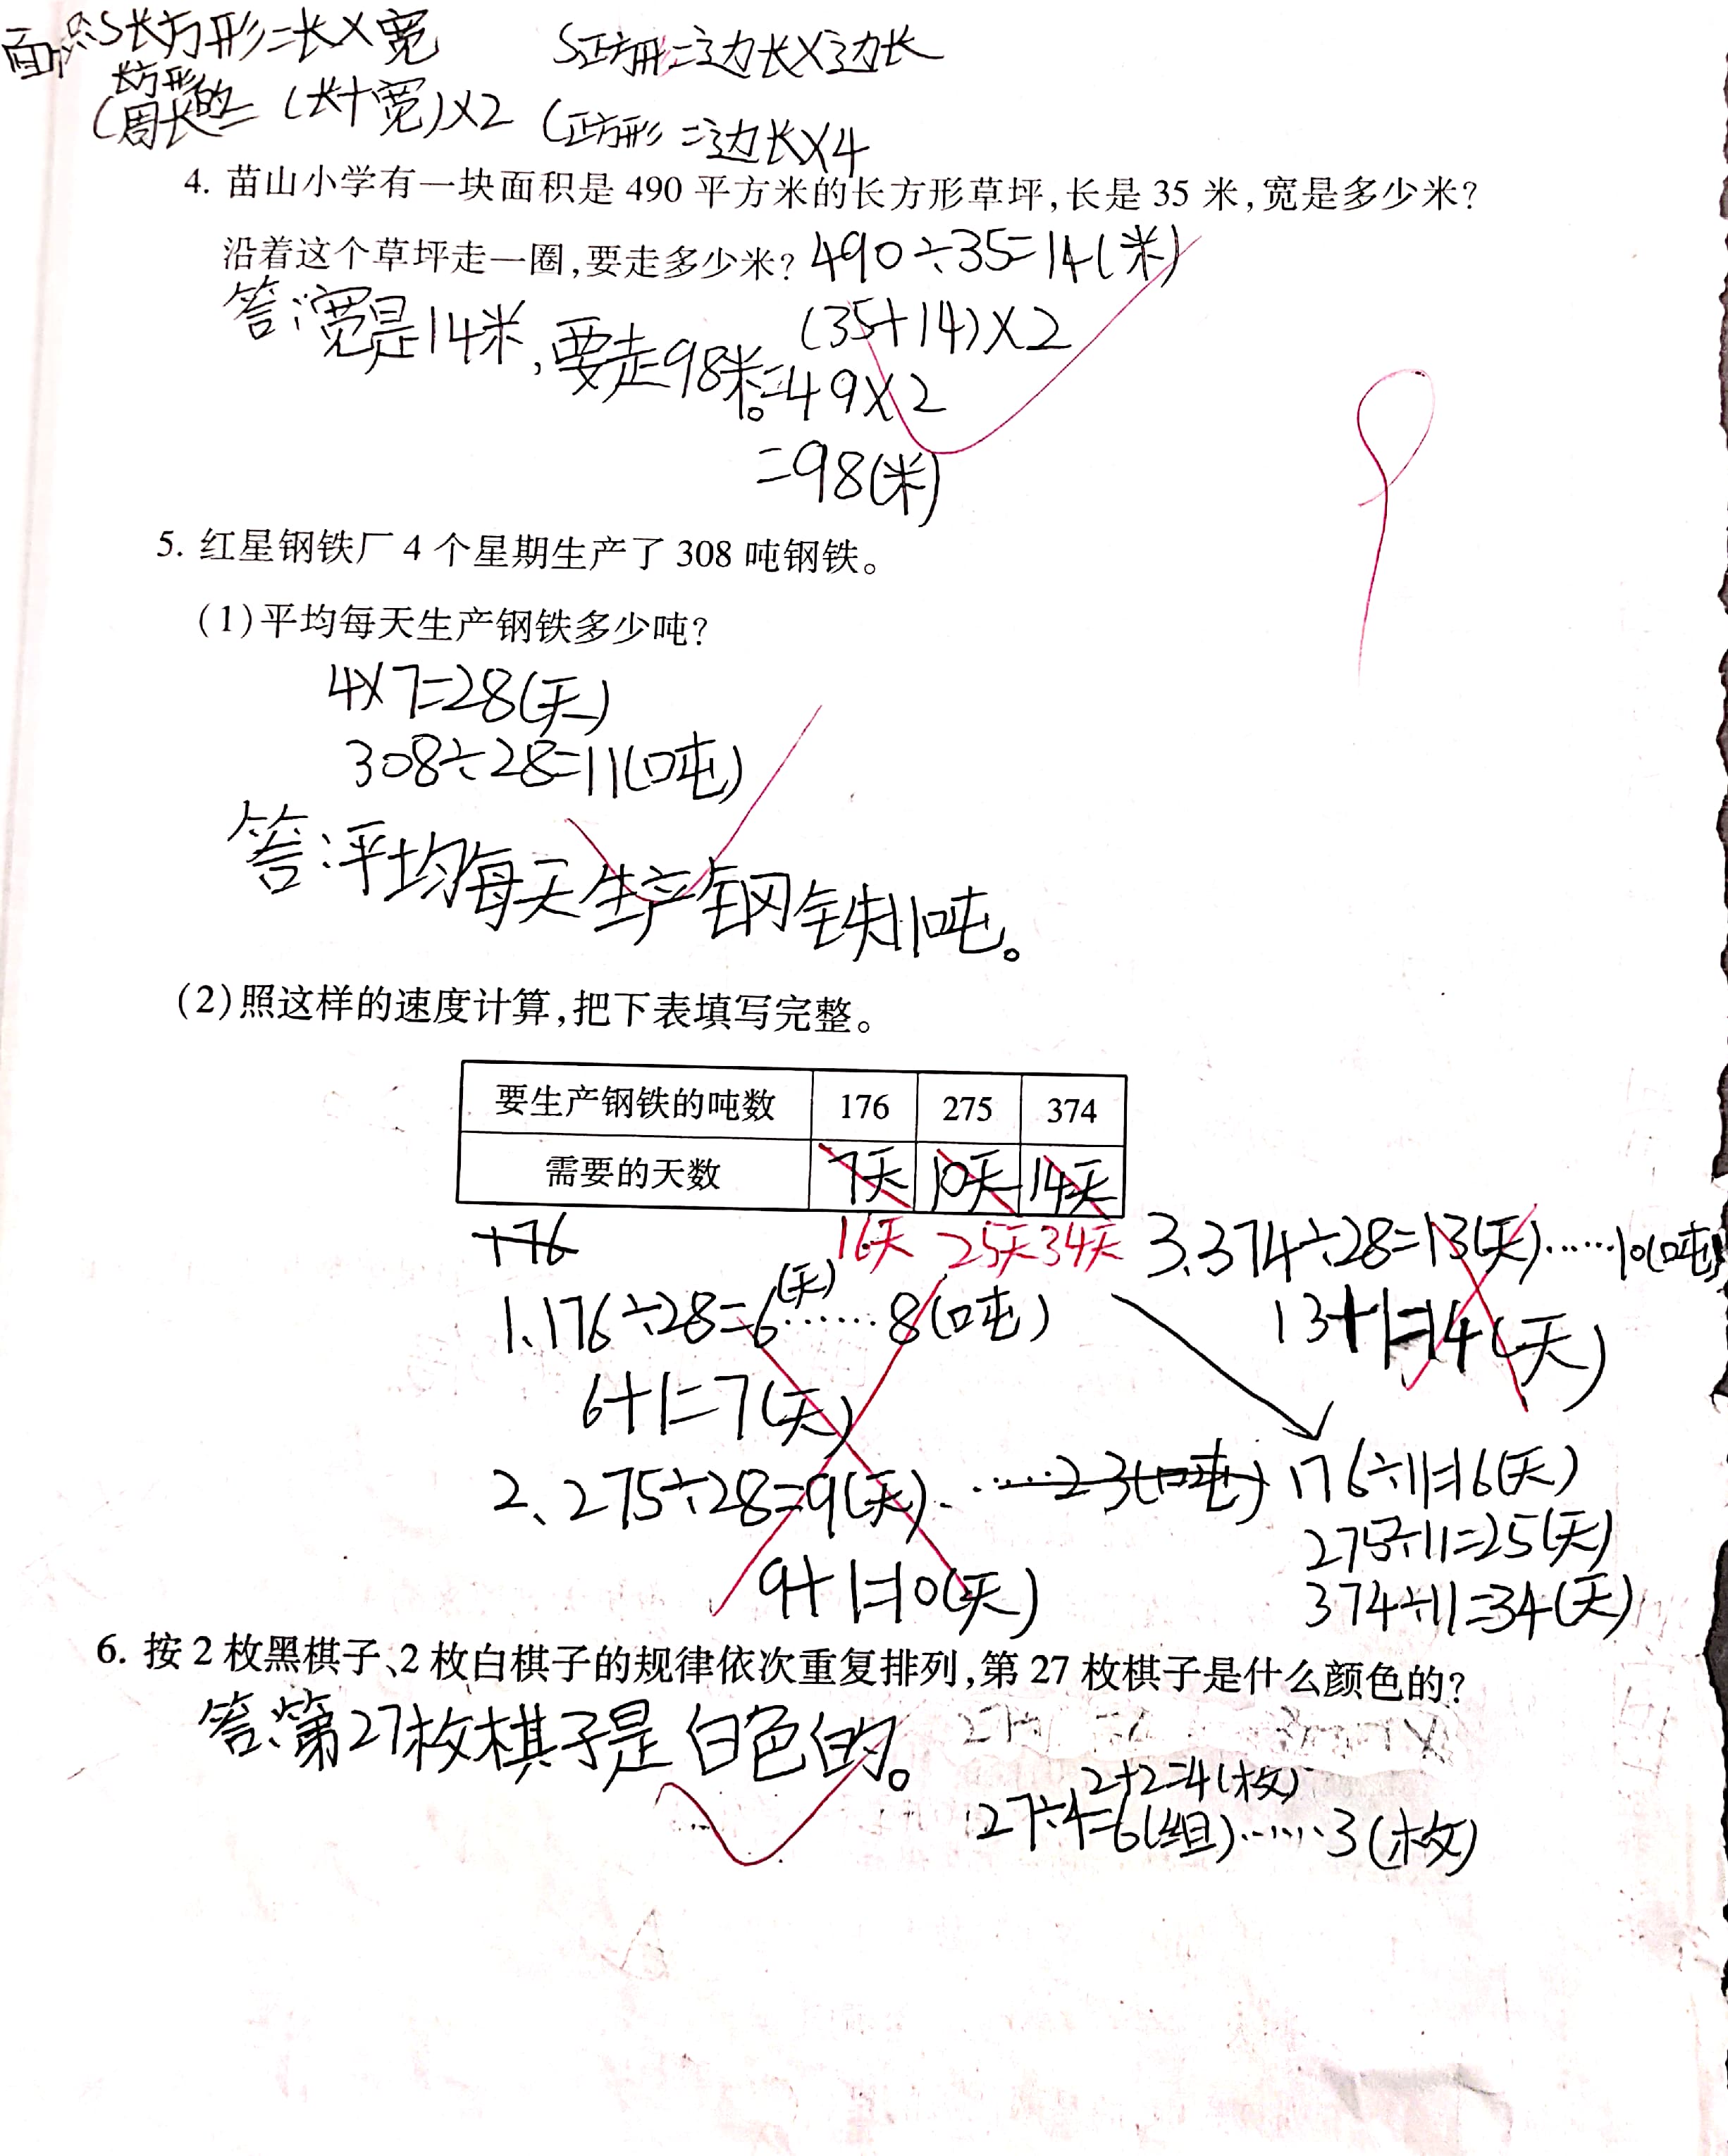 面积S长方形=长×宽 S正方形=边长×边长
C长方形的周长=(长+宽)×2 C正方形=边长×4
4. 苗山小学有一块面积是 490 平方米的长方形草坪,长是 35 米,宽是多少米?
沿着这个草坪走一圈,要走多少米? 490÷35=14(米)
(35+14)×2
=49×2
=98(米)
答:宽是14米,要走98米。
5. 红星钢铁厂 4 个星期生产了 308 吨钢铁。
(1)平均每天生产钢铁多少吨?
4×7=28(天)
308÷28=11(吨)
答:平均每天生产钢铁11吨。
(2)照这样的速度计算,把下表填写完整。
要生产钢铁的吨数 176 275 374
需要的天数 7天 10天 14天
16天 25天 34天
176
1.176÷28=6(天)……8(吨)
6+1=7(天)
2、275÷28=9(天)……23(吨)
9+1=10(天)
3.374÷28=13(天)……10(吨)
13+1=14(天)
176÷11=16(天)
275÷11=25(天)
374÷11=34(天)
6. 按 2 枚黑棋子、2 枚白棋子的规律依次重复排列,第 27 枚棋子是什么颜色的?
答:第27枚棋子是白色的。
2+2=4(枚)
27÷4=6(组)……3(枚)